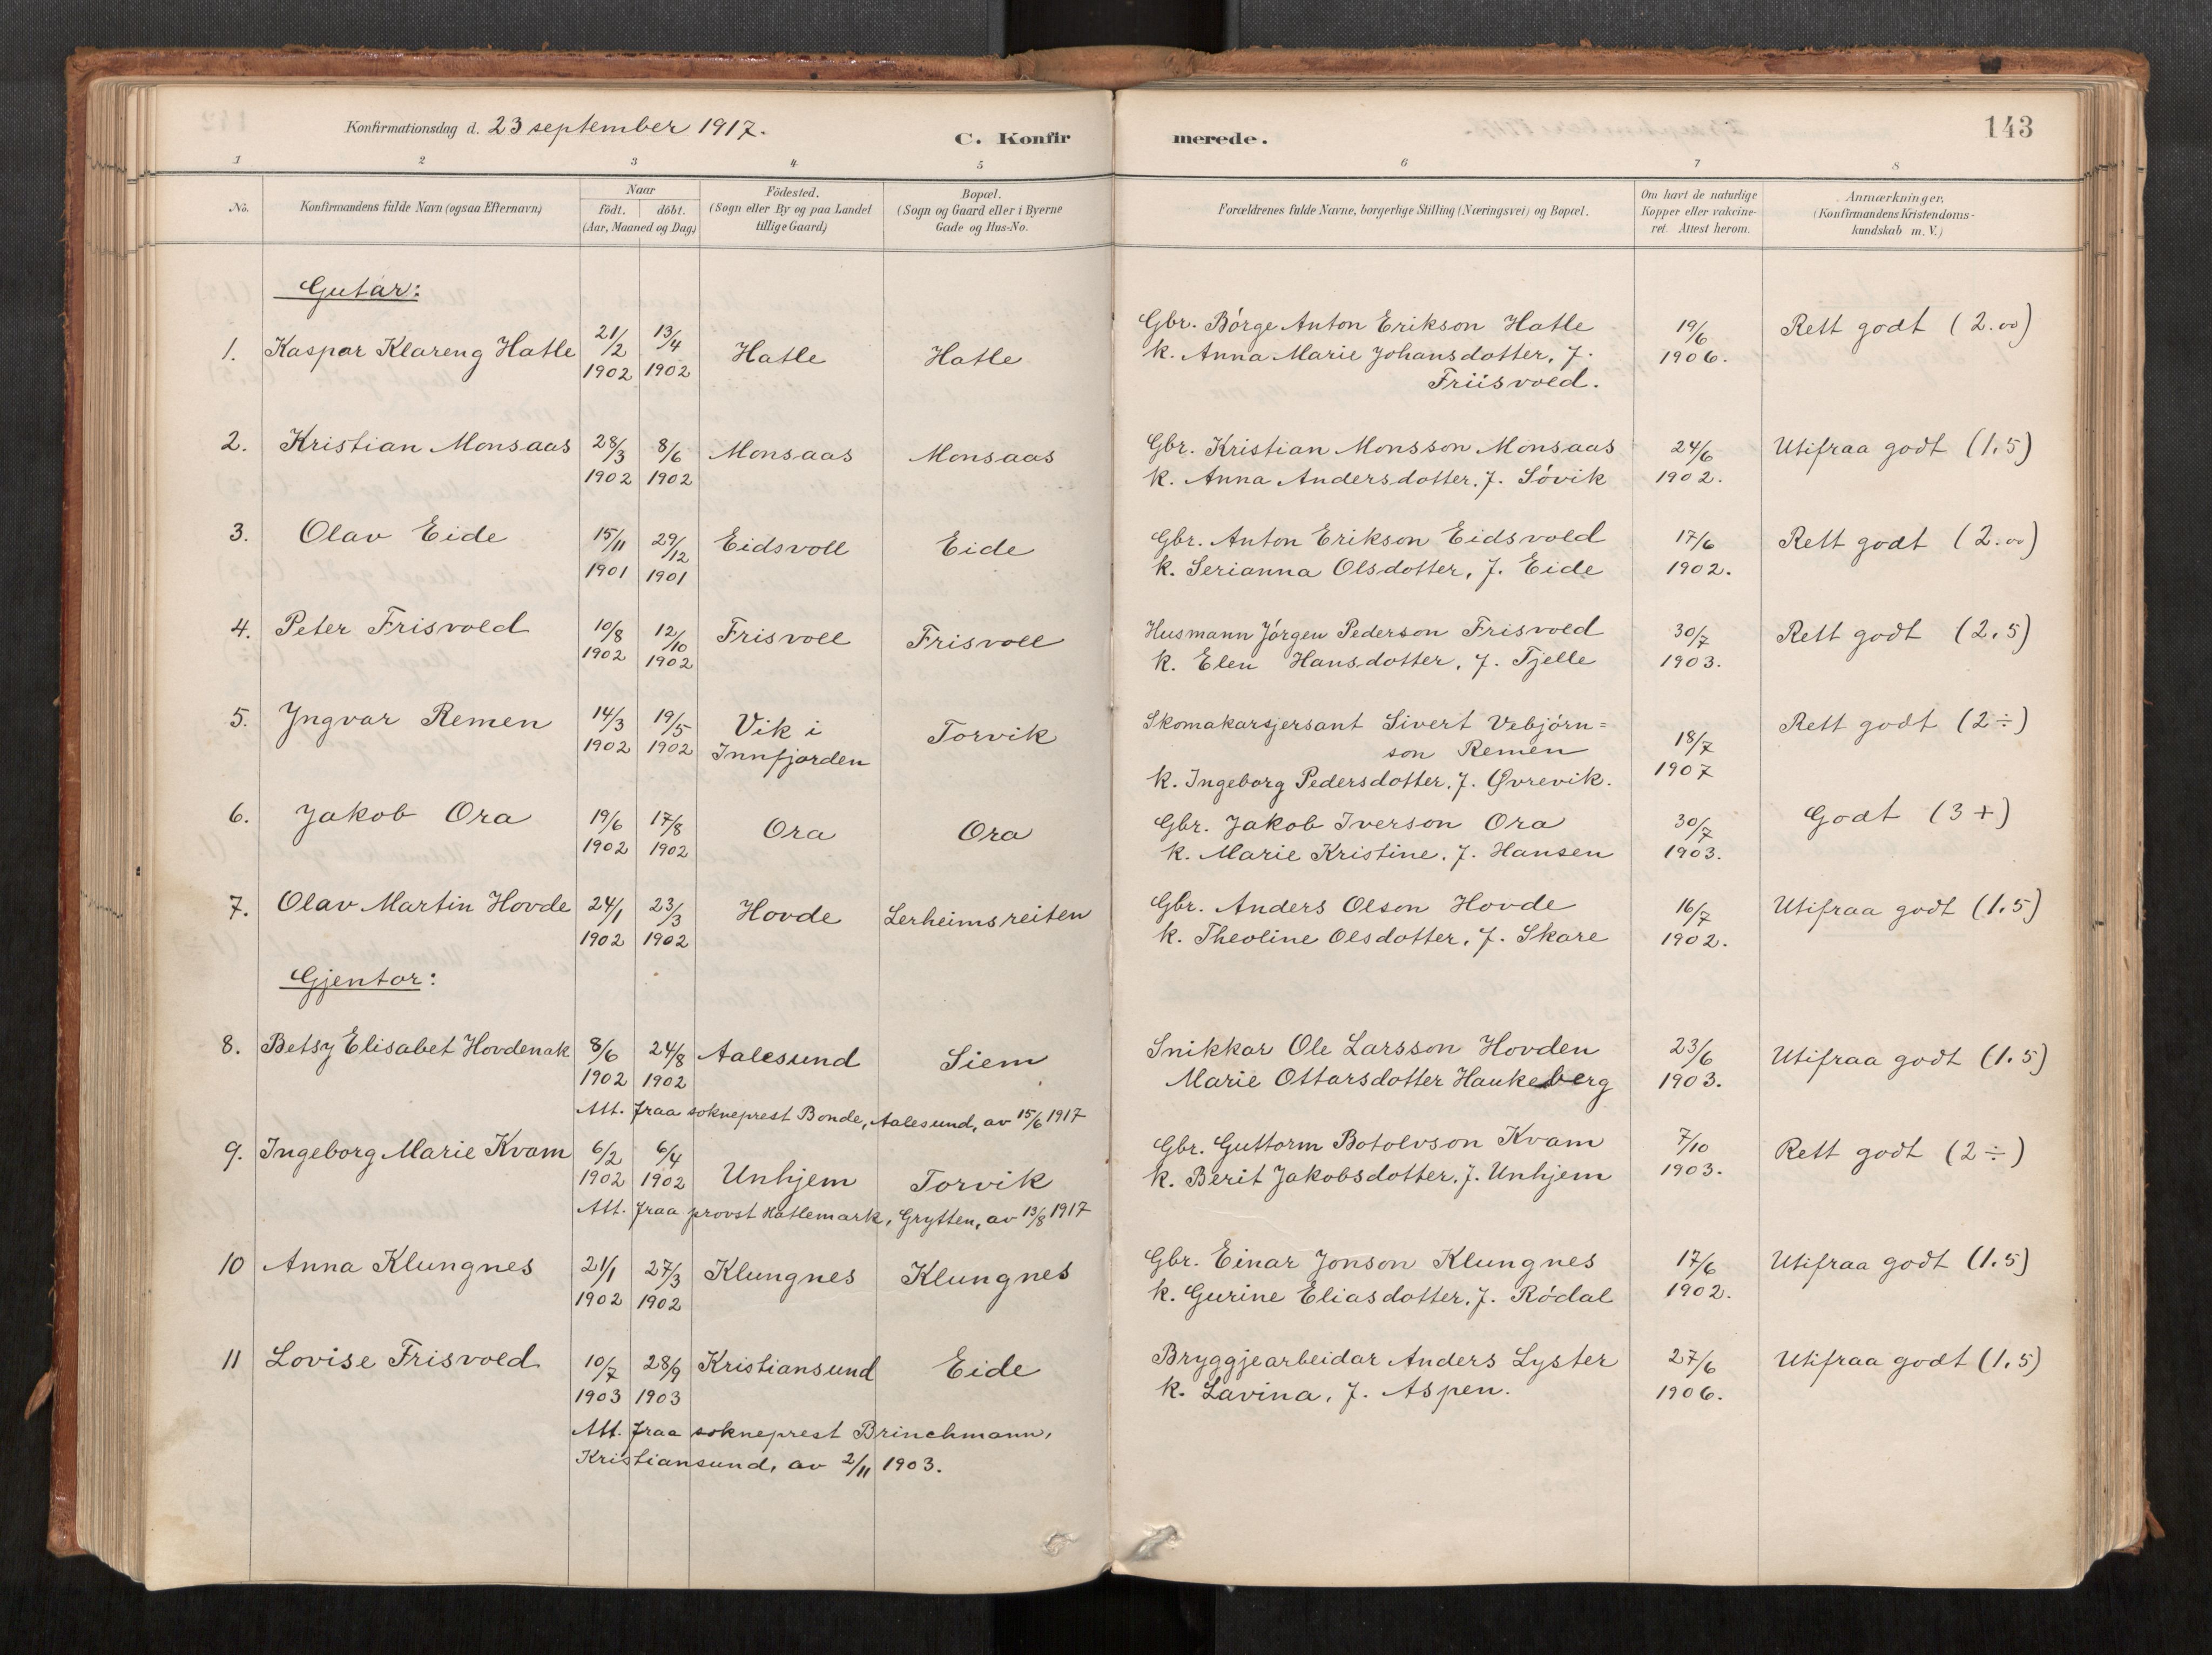 Konfirmationsdag d. 23 september 1917.
C. Konfirmerede.
143
1 2 3 4 5 6 7 8
No.
Konfirmandens fulde Navn (ogsaa Efternavn)
Naar
födt. döbt.
(Aar, Maaned og Dag)
Födested.
(Sogn eller By og paa Landet
tillige Gaard)
Bopæl.
(Sogn og Gaard eller i Byerne
Gade og Hus-No.
Forældrenes fulde Navne, borgerlige Stilling (Næringsvei) og Bopæl.
Om havt de naturlige
Kopper eller vakcine-
ret. Attest herom.
Anmærkninger.
(Konfirmandens Kristendoms-
kundskab m. V.)
Gutar:
1. Kaspar Klareng Hatle 21/2 1902 13/4 1902 Hatle Hatle
Gbr. Börge Anton Erikson Hatle
k. Anna Marie Johansdotter, f.
Friisvold.
19/6 1906. Rett godt (2.00)
2. Kristian Monsaas 28/3 1902 8/6 1902 Monsaas Monsaas
Gbr. Kristian Monsson Monsaas
k. Anna Andersdotter. f. Sövik
24/6 1902. Utifraa godt (1.5)
3. Olav Eide 15/11 1901 29/12 1901 Eidsvoll Eide
Gbr. Anton Erikson Eidsvold
k. Serianna Olsdotter, f. Eide
17/6 1902. Rett godt (2.00)
4. Peter Frisvold 10/8 1902 12/10 1902 Frisvoll Frisvoll
Husmann Jörgen Pederson Frisvold
k. Elen Hansdotter, f. Tjelle
30/7 1903. Rett godt (2.5)
5. Yngvar Remen 14/3 1902 19/5 1902 Vik i
Innfjorden Torvik
Skomakarsjersant Sivert Vebjörn=
son Remen
k. Ingeborg Pedersdotter. f. Øvrevik.
18/7 1907 Rett godt (2÷)
6. Jakob Ora 19/6 1902 17/8 1902 Ora Ora
Gbr. Jakob Iverson Ora
k. Marie Kristine. f. Hansen
30/7 1903. Godt (3+)
7. Olav Martin Hovde 24/1 1902 23/3 1902 Hovde Lerheimsreiten
Gbr. Anders Olson Hovde
k. Theoline Olsdotter, f. Skare
16/7 1902. Utifraa godt (1.5)
Gjentor:
8. Betsy Elisabet Hovdenak 8/6 1902 24/8 1902 Aalesund Siem
Att. fraa sokneprest Bonde, Aalesund, av 15/6 1917
Snikkar Ole Larsson Hovden
Marie Ottarsdotter Haukeberg
23/6 1903. Utifraa godt (1.5)
9. Ingeborg Marie Kvam 6/2 1902 6/4 1902 Unhjem Torvik
Att. fraa provst Hatlemark, Grytten, av 13/8 1917
Gbr. Guttorm Botolvson Kvam
k. Berit Jakobsdotter. f. Unhjem
7/10 1903. Rett godt (2÷)
10 Anna Klungnes 21/1 1902 27/3 1902 Klungnes Klungnes
Gbr. Einar Jonson Klungnes
k. Gurine Eliasdotter. f. Rödal
17/6 1902. Utifraa godt (1.5)
11 Lovise Frisvold 10/7 1903 28/9 1903 Kristiansund Eide
Att. fraa sokneprest Brinchmann,
Kristiansund, av 2/11 1903.
Bryggjearbeidar Anders Lyster
k. Lavina, f. Aspen.
27/6 1906. Utifraa godt (1.5)